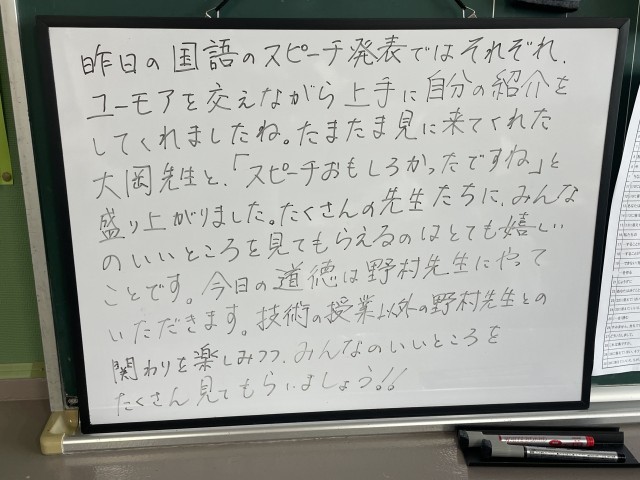 昨日の国語のスピーチ発表ではそれぞれ、
ユーモアを交えながら上手に自分の紹介を
してくれましたね。たまたま見に来てくれた
大岡先生と、「スピーチおもしろかったですね」と
盛り上がりました。たくさんの先生たちに、みんな
のいいところを見てもらえるのはとても嬉しい
ことです。今日の道徳は野村先生にやって
いただきます。技術の授業以外の野村先生との
関わりを楽しみつつ、みんなのいいところを
たくさん見てもらいましょう!!